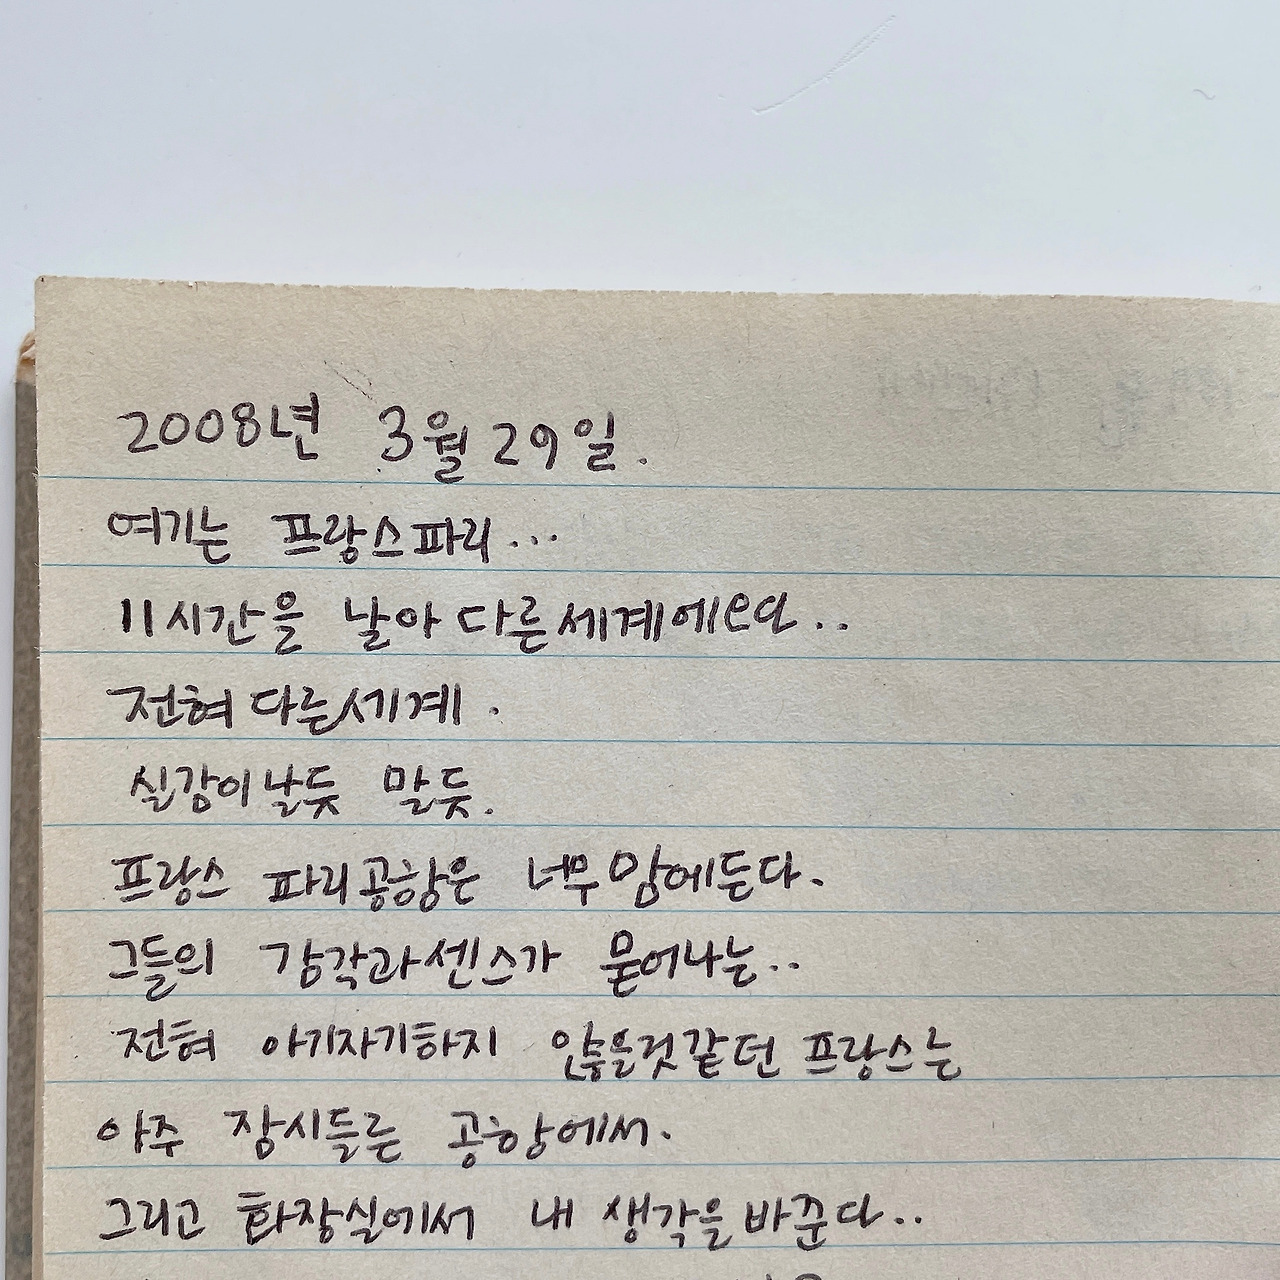 2008년 3월 29일.
여기는 프랑스 파리...
11시간을 날아 다른 세계에 왔다..
전혀 다른 세계.
실감이 날듯 말듯.
프랑스 파리공항은 너무 맘에 든다.
그들의 감각과 센스가 묻어나는..
전혀 아기자기하지 않을것 같던 프랑스는
아주 잠시 들른 공항에서.
그리고 화장실에서 내 생각을 바꾼다..